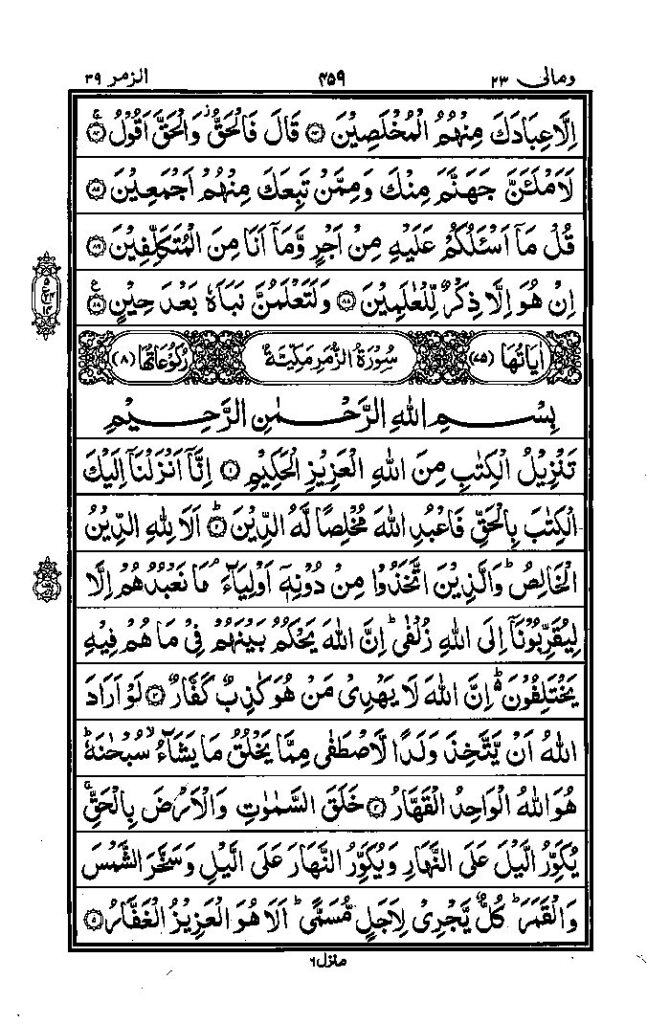 ومالى ٢٣ ۴۵۹ الزمر ٣٩
اِلَّا عِبَادَكَ مِنْهُمُ الْمُخْلَصِيْنَ ﴿٨٣﴾ قَالَ فَالْحَقُّ ؗ وَالْحَقَّ اَقُوْلُ ﴿٨٤﴾ۚ
لَاَمْلَئَنَّ جَهَنَّمَ مِنْكَ وَمِمَّنْ تَبِعَكَ مِنْهُمْ اَجْمَعِيْنَ ﴿٨٥﴾
قُلْ مَاۤ اَسْـَٔلُكُمْ عَلَيْهِ مِنْ اَجْرٍ وَّمَاۤ اَنَا مِنَ الْمُتَكَلِّفِيْنَ ﴿٨٦﴾
اِنْ هُوَ اِلَّا ذِكْرٌ لِّلْعٰلَمِيْنَ ﴿٨٧﴾ وَلَتَعْلَمُنَّ نَبَاَهٗ بَعْدَ حِيْنٍ ﴿٨٨﴾ۧ
اٰيَاتُهَا (٧٥) سُوْرَةُ الزُّمَرِ مَكِّيَّةٌ رُكُوْعَاتُهَا (٨)
بِسْمِ اللهِ الرَّحْمٰنِ الرَّحِيْمِ
تَنْزِيْلُ الْكِتٰبِ مِنَ اللهِ الْعَزِيْزِ الْحَكِيْمِ ﴿١﴾ اِنَّاۤ اَنْزَلْنَاۤ اِلَيْكَ
الْكِتٰبَ بِالْحَقِّ فَاعْبُدِ اللهَ مُخْلِصًا لَّهُ الدِّيْنَ ﴿٢﴾ؕ اَلَا لِلّٰهِ الدِّيْنُ
الْخَالِصُ ؕ وَالَّذِيْنَ اتَّخَذُوْا مِنْ دُوْنِهٖۤ اَوْلِيَآءَ ۘ مَا نَعْبُدُهُمْ اِلَّا
لِيُقَرِّبُوْنَاۤ اِلَى اللهِ زُلْفٰى ؕ اِنَّ اللهَ يَحْكُمُ بَيْنَهُمْ فِيْ مَا هُمْ فِيْهِ
يَخْتَلِفُوْنَ ۬ؕ اِنَّ اللهَ لَا يَهْدِيْ مَنْ هُوَ كٰذِبٌ كَفَّارٌ ﴿٣﴾ لَوْ اَرَادَ
اللهُ اَنْ يَّتَّخِذَ وَلَدًا لَّاصْطَفٰى مِمَّا يَخْلُقُ مَا يَشَآءُ ۙ سُبْحٰنَهٗ ؕ
هُوَ اللهُ الْوَاحِدُ الْقَهَّارُ ﴿٤﴾ خَلَقَ السَّمٰوٰتِ وَالْاَرْضَ بِالْحَقِّ ۚ
يُكَوِّرُ الَّيْلَ عَلَى النَّهَارِ وَيُكَوِّرُ النَّهَارَ عَلَى الَّيْلِ وَسَخَّرَ الشَّمْسَ
وَالْقَمَرَ ؕ كُلٌّ يَّجْرِيْ لِاَجَلٍ مُّسَمًّى ؕ اَلَا هُوَ الْعَزِيْزُ الْغَفَّارُ ﴿٥﴾
منزل ٦